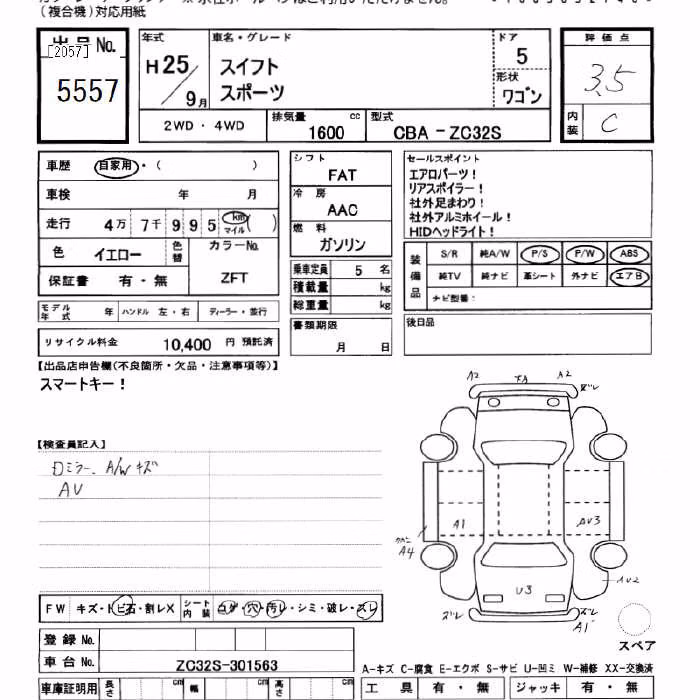 (複合機)対応用紙
出品No.
[2057]
5557
年式 車名・グレード ドア 評価点
H25/9月 スイフト スポーツ 5 3.5
形状 ワゴン
2WD・4WD 排気量 1600 cc 型式 CBA-ZC32S 内装 C
車歴 自家用・( )
車検 年 月
走行 4万 7千 9 9 5 km マイル ( )
色 イエロー 色替 カラーNo. ZFT
保証書 有・無
モデル年式 年 ハンドル 左・右 ディーラー・並行
リサイクル料金 10,400 円 預託済
シフト FAT
冷房 AAC
燃料 ガソリン
乗車定員 5 名
積載量 kg
総重量 kg
書類期限
月 日
セールスポイント
エアロパーツ!
リアスポイラー!
社外足まわり!
社外アルミホイール!
HIDヘッドライト!
装備品 S/R 純A/W P/S P/W ABS
純TV 純ナビ 革シート 外ナビ エアB
ナビ型番:
後日品
【出品店申告欄(不良箇所・欠品・注意事項等)】
スマートキー!
【検査員記入】
ロミラー、A/Wキズ
AV
A2 A2
A1 AV3
A4
U3 AU2
ズレ ズレ
A1
スペア
FW キズ・トビ石・割レX シート内装 コゲ・穴・汚レ・シミ・破レ・スレ
登録No.
車台No. ZC32S-301563
A-キズ C-腐食 E-エクボ S-サビ U-凹ミ W-補修 XX-交換済
車庫証明用 長さ cm 幅 cm 高さ cm 工具 有・無 ジャッキ 有・無